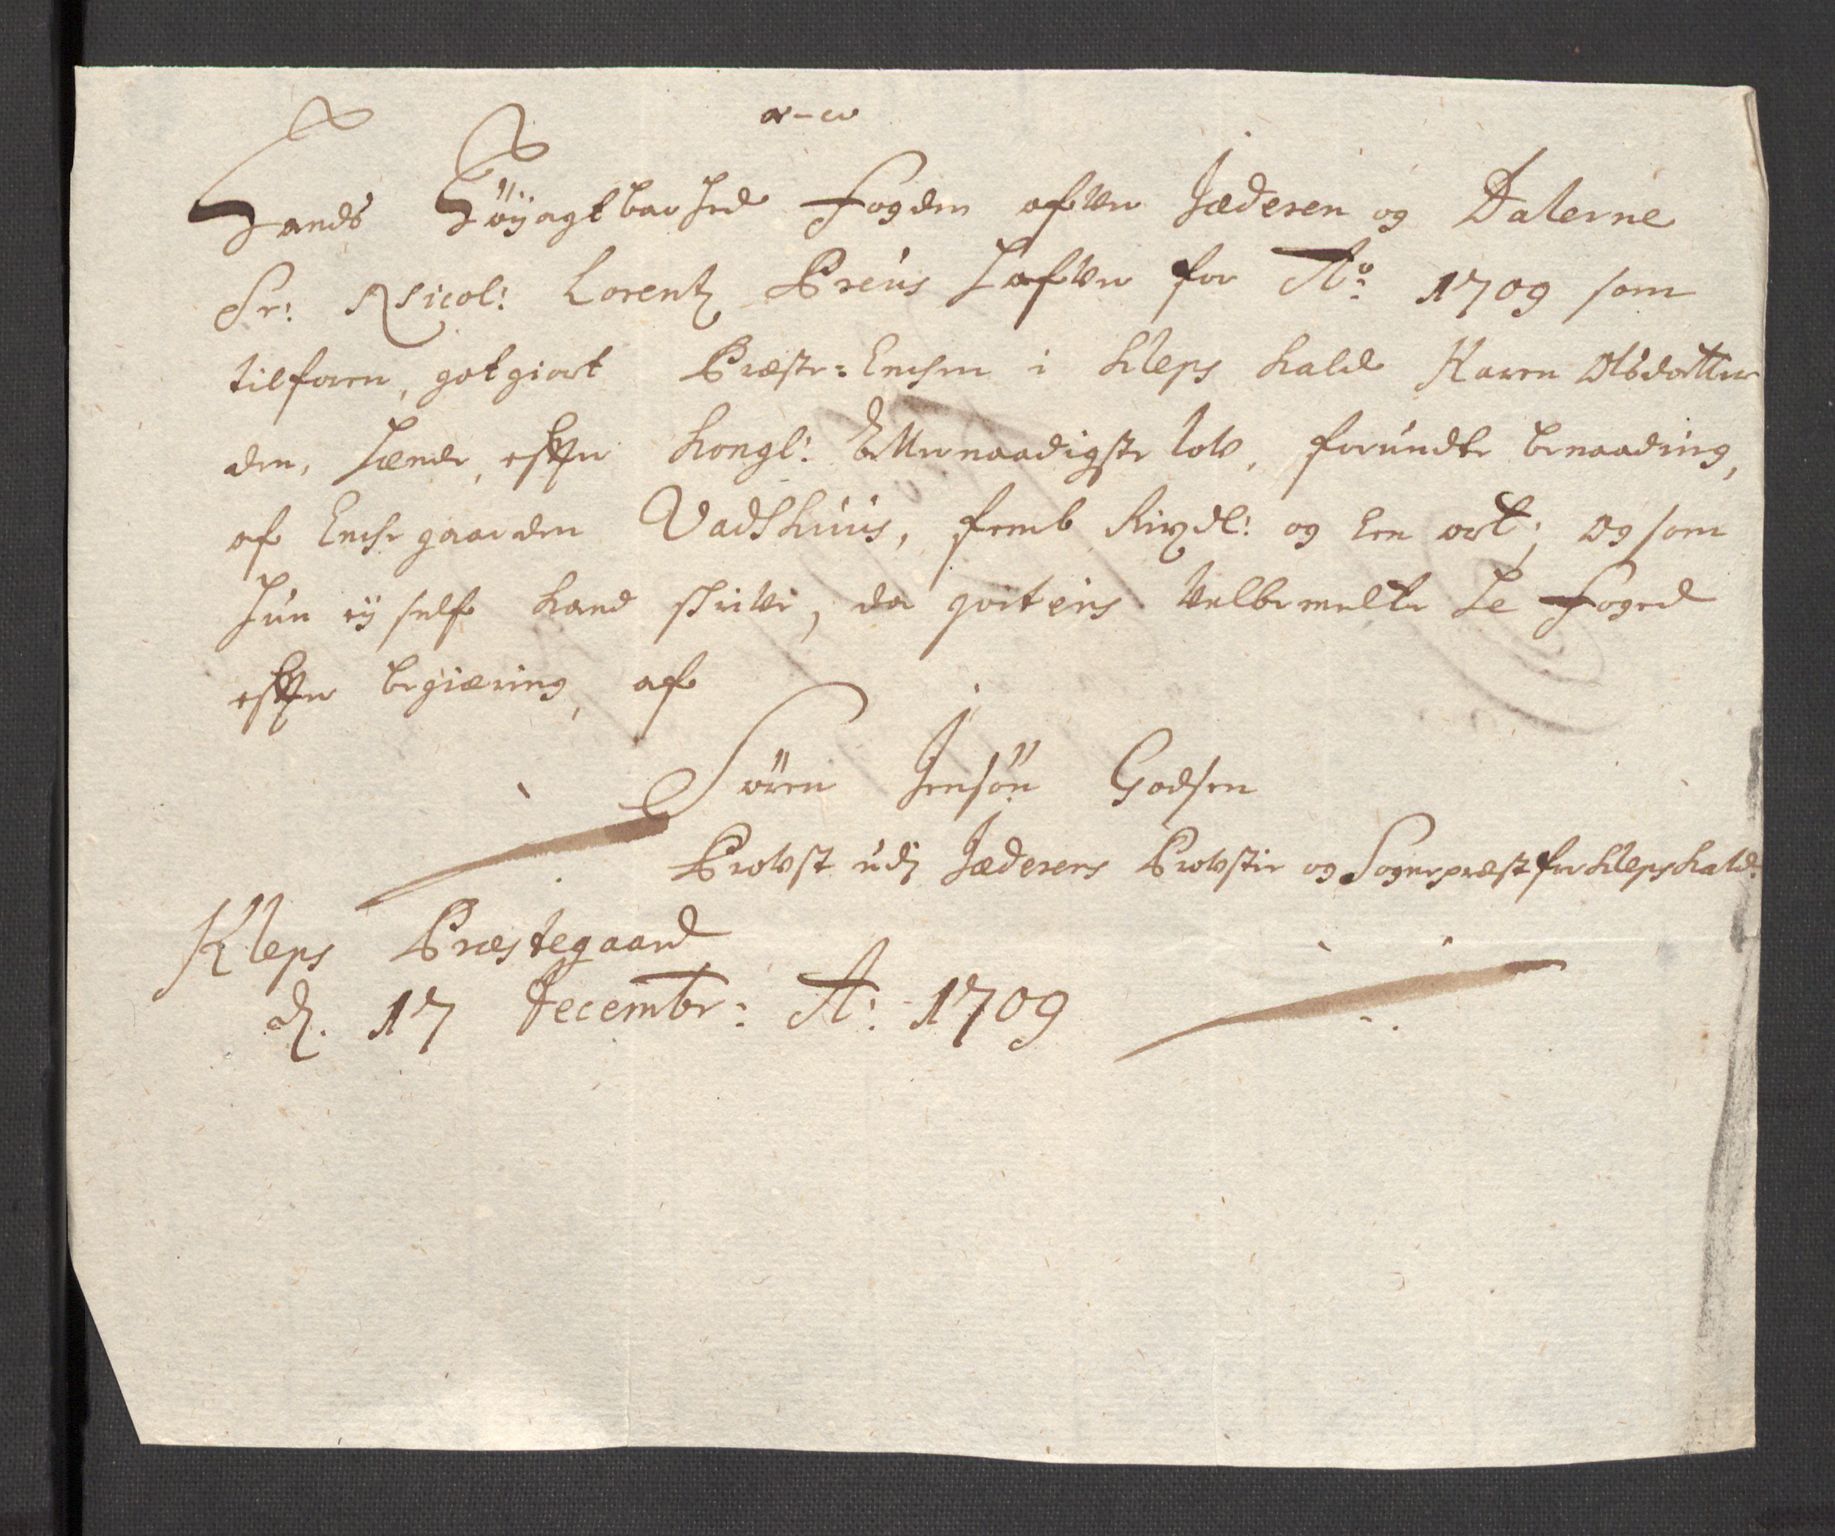 Hands Høÿagtbarhed Fogden ofver Jæderen og Dalerne
Sr: Nicol: Lorentz Preus hafver for Ao: 1709 som
tilforn, gotgiort Præste-Enchen i Kleps Kald Karen Olsdatter
den, hende, efter Kongl: Allernaadigste lov, forundte benaading,
af Enchegaarden Vadshuus, femb Rixdl: og Een ort; Og som
hun eÿ self kand skrive, da qviteris Velbemelte Hr Foged
efter begiæring, af
Søren Jensøn Godsen
Provst udj Jæderens Provstie og Sognepræst for Kleps Kald.
Kleps Præstegaard
d. 17 Decembr: A: 1709